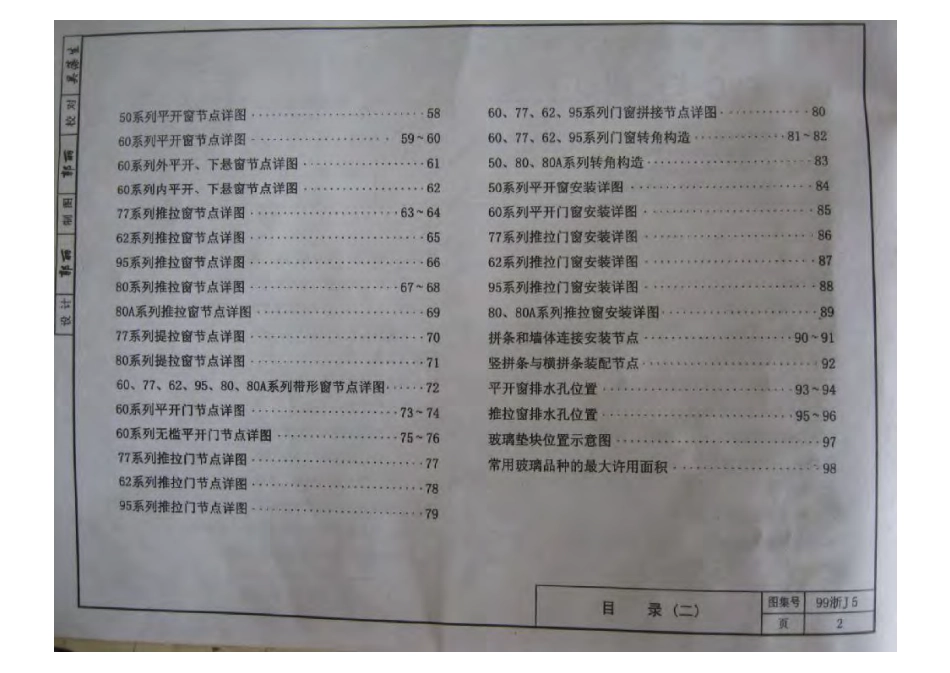 50系列平开窗节点详图 58
60系列平开窗节点详图 59~60
60系列外平开、下悬窗节点详图 61
60系列内平开、下悬窗节点详图 62
77系列推拉窗节点详图 63~64
62系列推拉窗节点详图 65
95系列推拉窗节点详图 66
80系列推拉窗节点详图 67~68
80A系列推拉窗节点详图 69
77系列提拉窗节点详图 70
80系列提拉窗节点详图 71
60、77、62、95、80、80A系列带形窗节点详图 72
60系列平开门节点详图 73~74
60系列无槛平开门节点详图 75~76
77系列推拉门节点详图 77
62系列推拉门节点详图 78
95系列推拉门节点详图 79
60、77、62、95系列门窗拼接节点详图 80
60、77、62、95系列门窗转角构造 81~82
50、80、80A系列转角构造 83
50系列平开窗安装详图 84
60系列平开门窗安装详图 85
77系列推拉门窗安装详图 86
62系列推拉门窗安装详图 87
95系列推拉门窗安装详图 88
80、80A系列推拉窗安装详图 89
拼条和墙体连接安装节点 90~91
竖拼条与横拼条装配节点 92
平开窗排水孔位置 93~94
推拉窗排水孔位置 95~96
玻璃垫块位置示意图 97
常用玻璃品种的最大许用面积 98
校对
制图
设计
目 录(二)
图集号 99浙J5
页 2